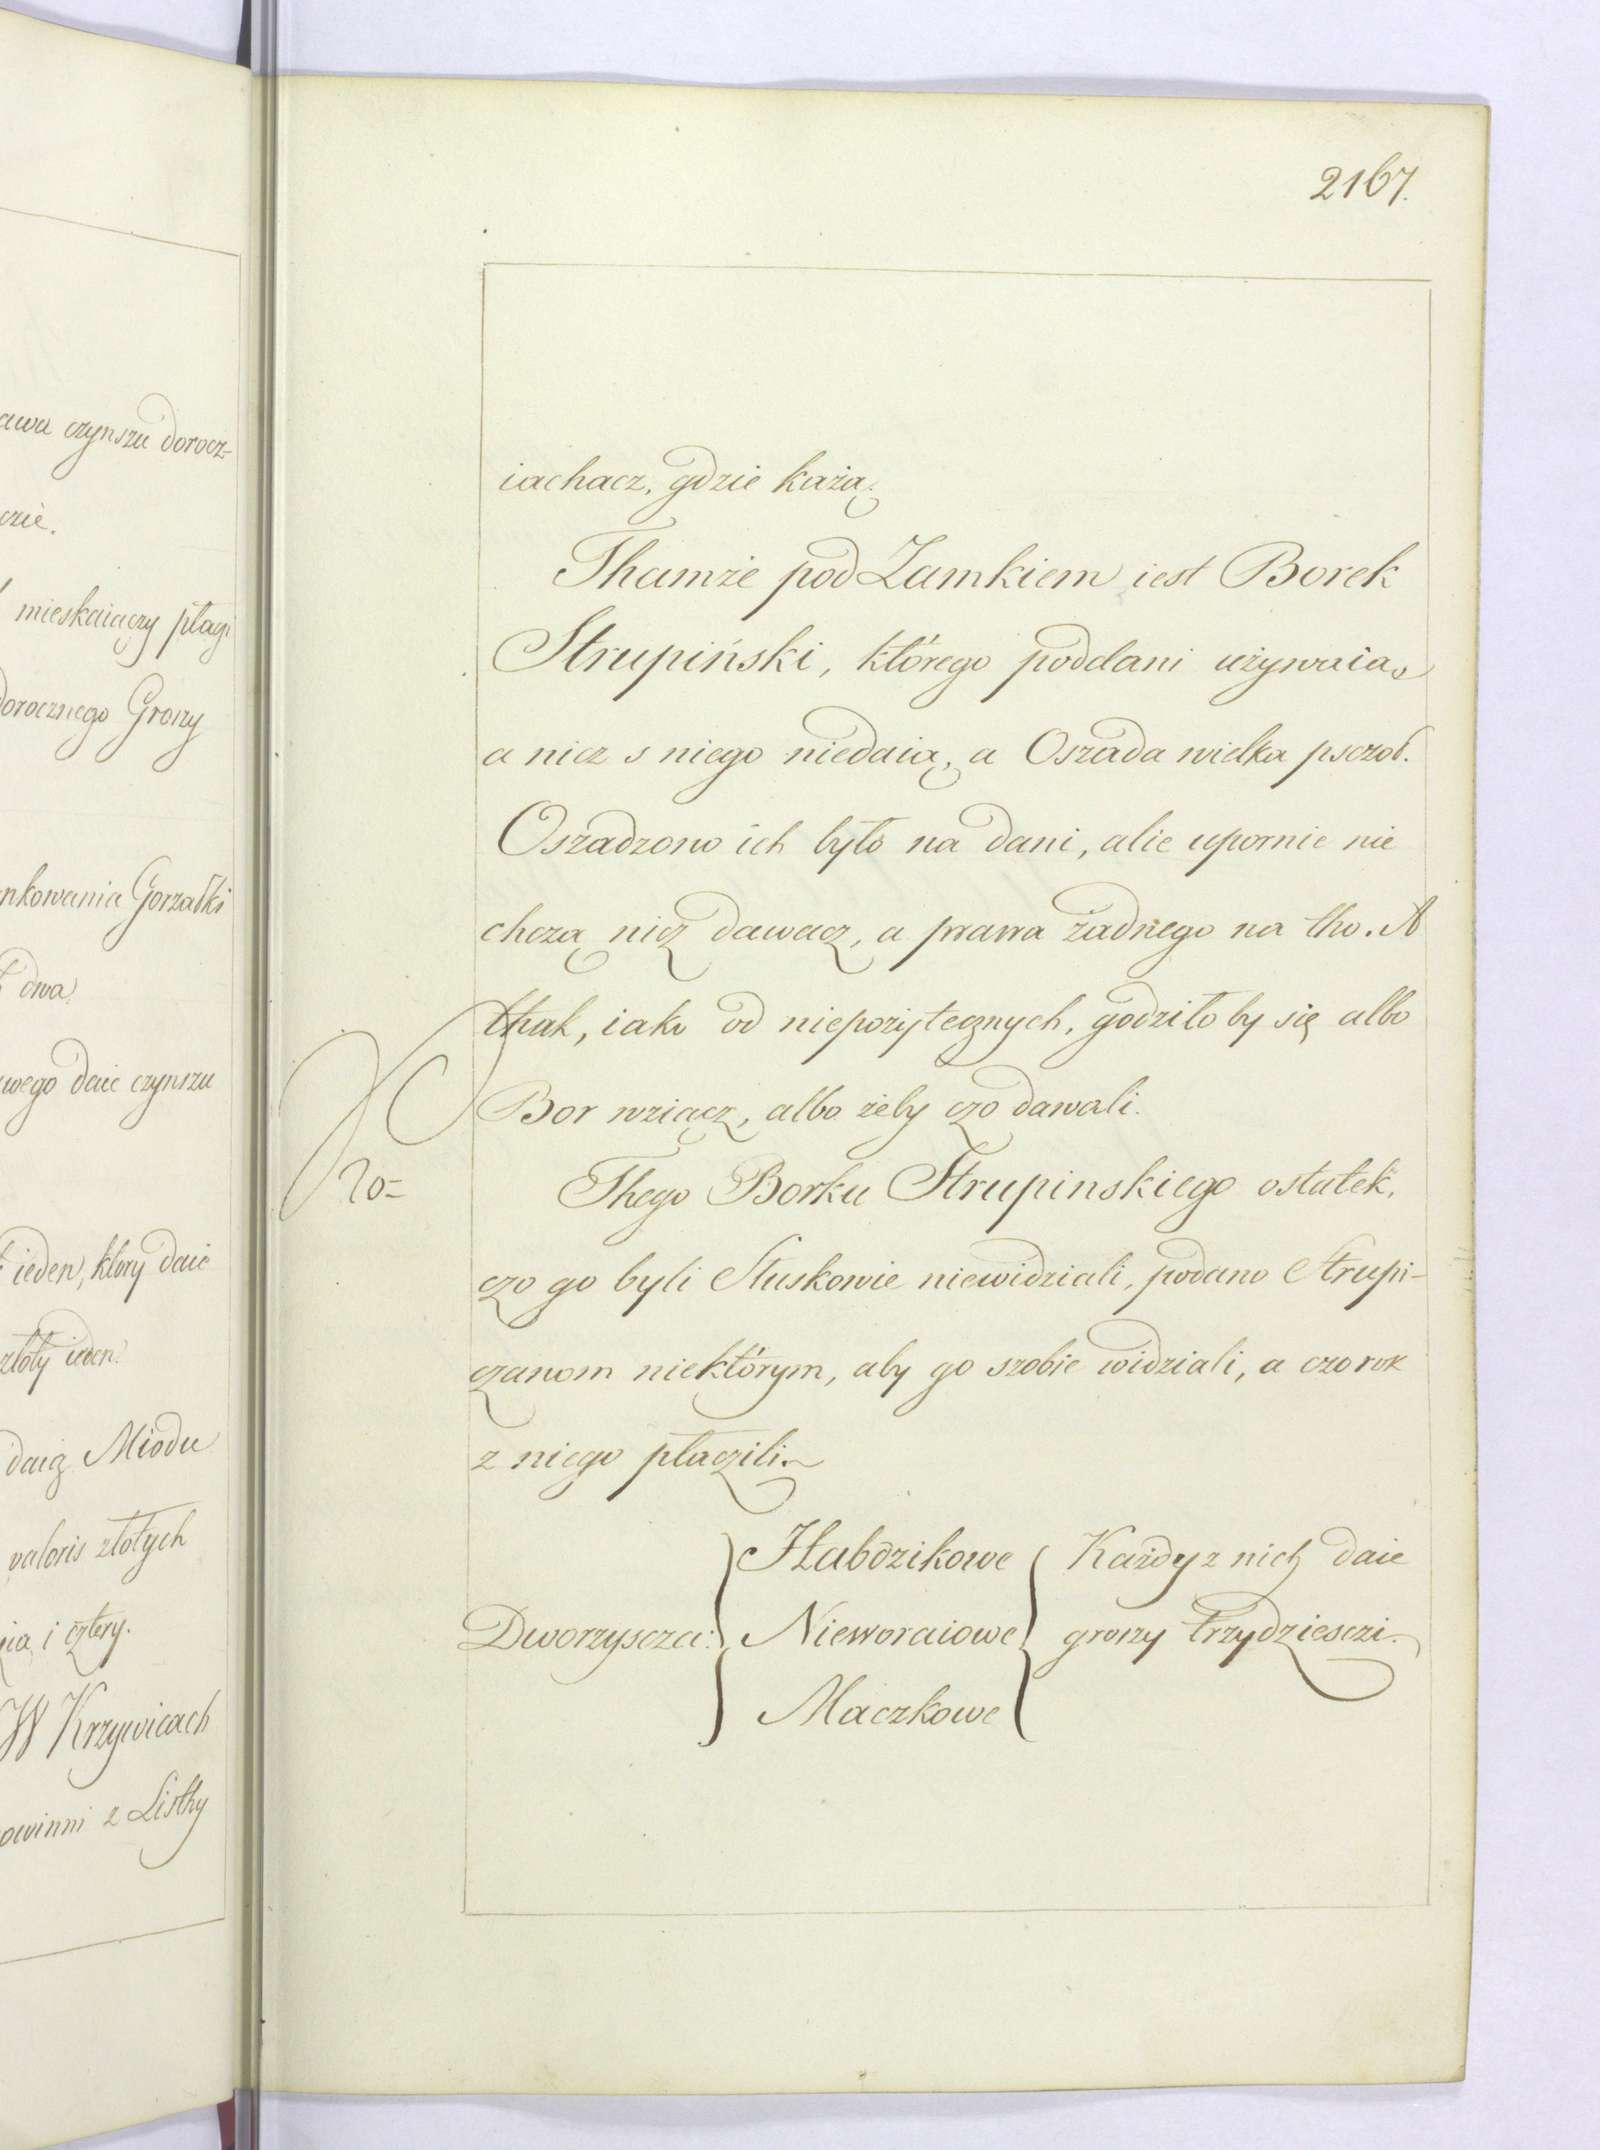 awa czynszu dorocz-
czie.
mieskaiączy płaçi
dorocznego Groszy
nkowania Gorzałki
dwa.
wego daie czynszu
ieden, ktory daie
złoty ieden.
daią Miodu
valoris złotych
i cztery.
W Krzywicach
owinni z Listhy
2167.
iachacz, gdzie każą.
Thamże pod Zamkiem iest Borek
Strupiński, którego poddani używaią,
a nicz s niego niedaią, a Oszada wielka psczoł.
Oszadzono ich było na dani, alie upornie nie
chczą nicz dawacz, a prawa żadnego na tho. A
thak, iako od niepożytecznych, godziłoby się albo
Bor wziącz, albo żeby czo dawali.
Thego Borku Strupinskiego ostatek,
czo go byli Sluskowie niewidziali, podano Strupi-
czanom niektórym, aby go szobie widziali, a czo rok
z niego płaczili.
Dworzyscza:
Habdzikowe
Nieworaiowe
Maczkowe
Każdy z nich daie
groszy trzydziesczi.